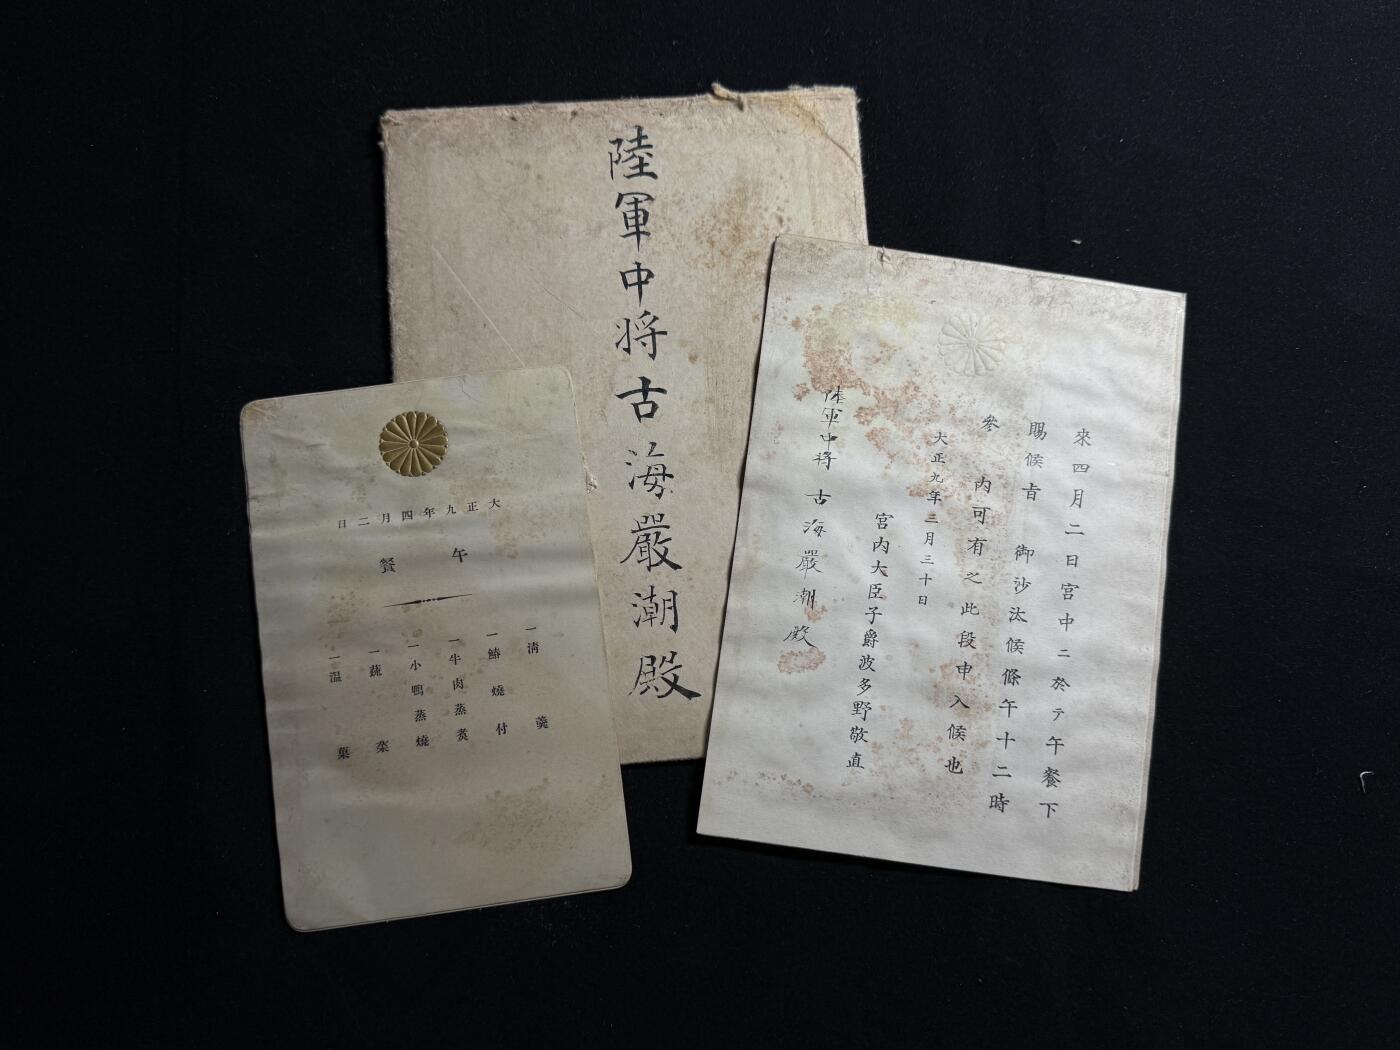 陸軍中将古海嚴潮殿
來四月二日宮中ニ於テ午餐下
賜候旨 御沙汰候條午十二時
參 內可有之此段申入候也
大正九年三月三十日
宮内大臣子爵波多野敬直
陸軍中将 古海嚴潮殿
大正九年四月二日
午餐
一清羹
一鰆燒付
一牛肉蒸煮
一小鴨蒸燒
一蔬菜
一溫菓